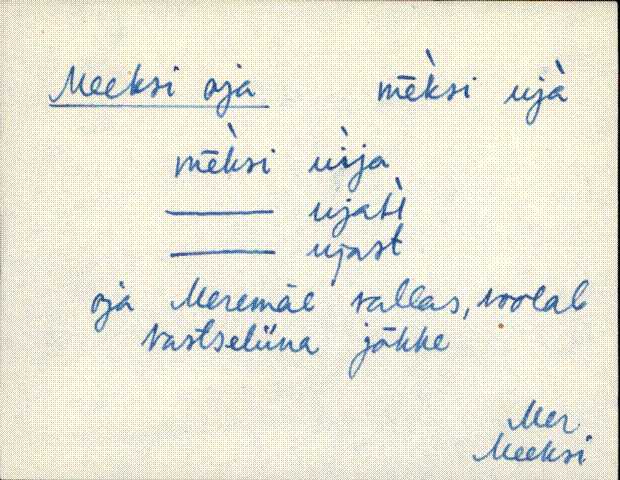 Meeksi oja mēk̀si ujà
mēk̀si uìja
——— ujatì
——— ujast
oja Meremäe vallas, voolab
Vastseliina jõkke
Mer
Meeksi